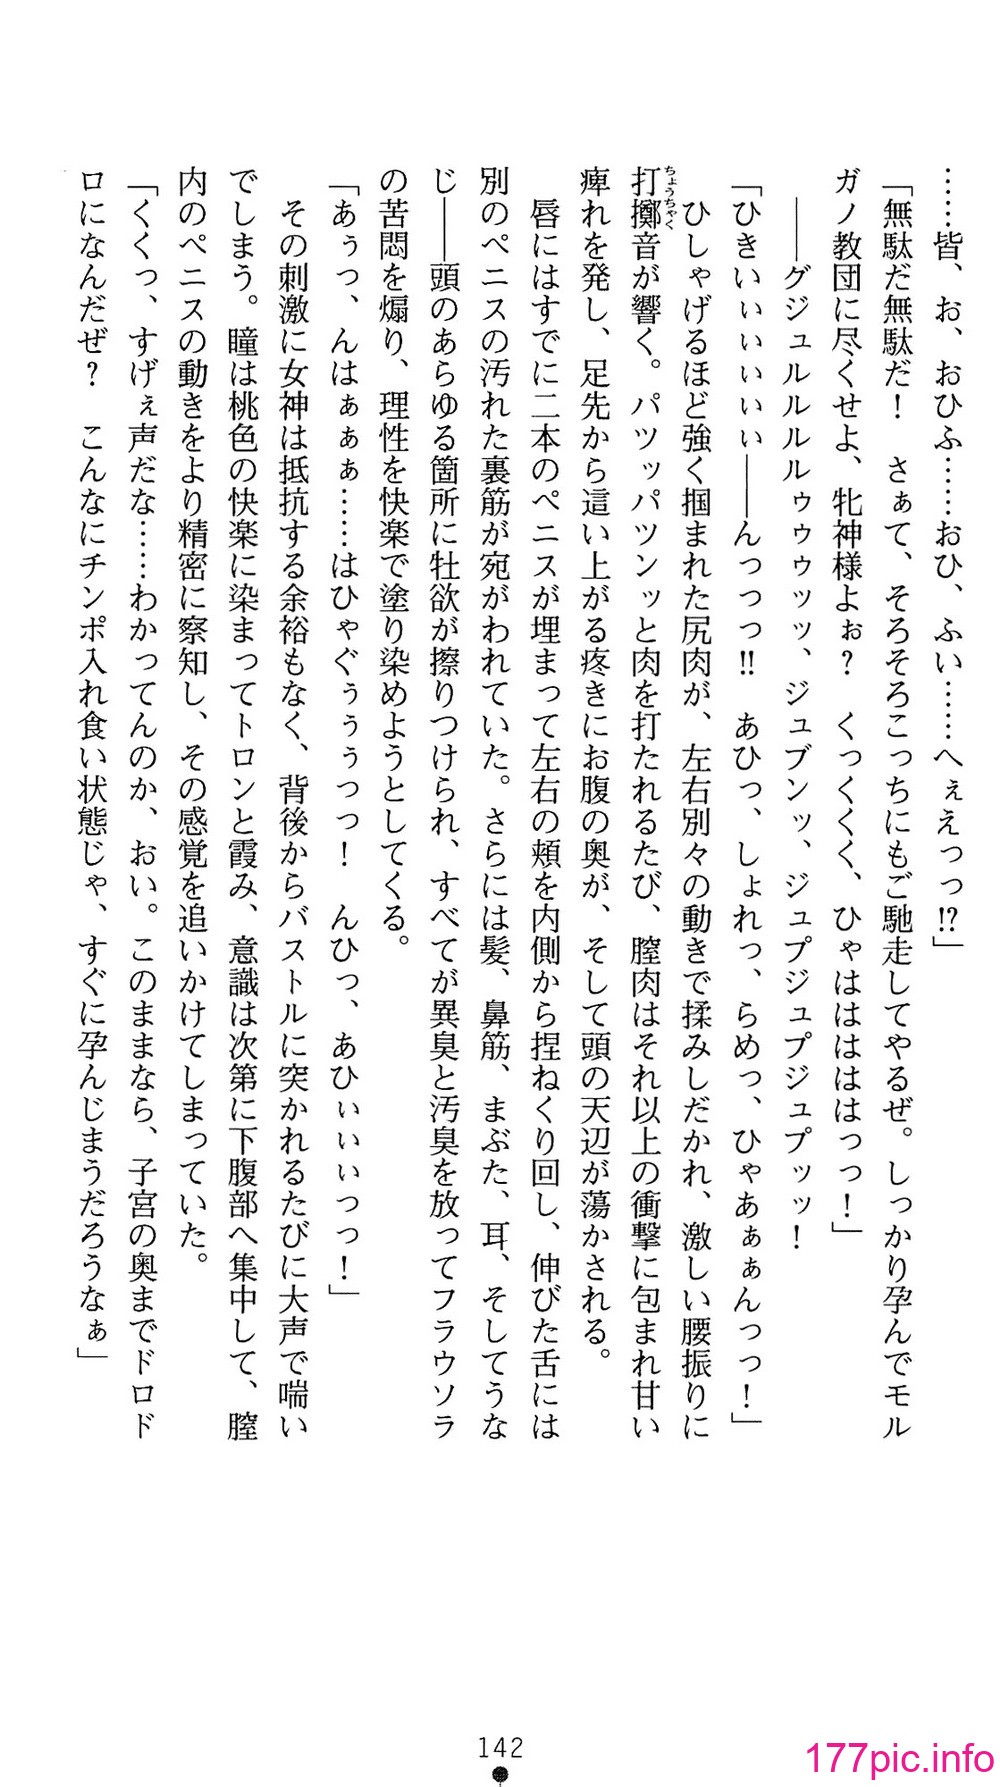 ……皆、お、おひふ……おひ、ふい……へぇえっっ!?」
「無駄だ無駄だ！　さぁて、そろそろこっちにもご馳走してやるぜ。しっかり孕んでモル
ガノ教団に尽くせよ、牝神様よぉ？　くっくくく、ひゃははははっっ！」
――グジュルルルルゥゥゥッッ、ジュブンッ、ジュプジュプジュプッッ！
「ひきいぃぃぃぃぃ――んっっっ!!　あひっ、しょれっ、らめっ、ひゃあぁぁんっっ！」
ひしゃげるほど強く掴まれた尻肉が、左右別々の動きで揉みしだかれ、激しい腰振りに
打擲音が響く。パツッパツンッと肉を打たれるたび、膣肉はそれ以上の衝撃に包まれ甘い
痺れを発し、足先から這い上がる疼きにお腹の奥が、そして頭の天辺が蕩かされる。
唇にはすでに二本のペニスが埋まって左右の頬を内側から捏ねくり回し、伸びた舌には
別のペニスの汚れた裏筋が宛がわれていた。さらには髪、鼻筋、まぶた、耳、そしてうな
じ――頭のあらゆる箇所に牡欲が擦りつけられ、すべてが異臭と汚臭を放ってフラウソラ
の苦悶を煽り、理性を快楽で塗り染めようとしてくる。
「あぅっ、んはぁぁぁ……はひゃぐぅぅぅっっ！　んひっ、あひぃぃぃっっ！」
その刺激に女神は抵抗する余裕もなく、背後からバストルに突かれるたびに大声で喘い
でしまう。瞳は桃色の快楽に染まってトロンと霞み、意識は次第に下腹部へ集中して、膣
内のペニスの動きをより精密に察知し、その感覚を追いかけてしまっていた。
「くくっ、すげぇ声だな……わかってんのか、おい。このままなら、子宮の奥までドロド
ロになんだぜ？　こんなにチンポ入れ食い状態じゃ、すぐに孕んじまうだろうなぁ」
ちょうちゃく
142
177pic.info